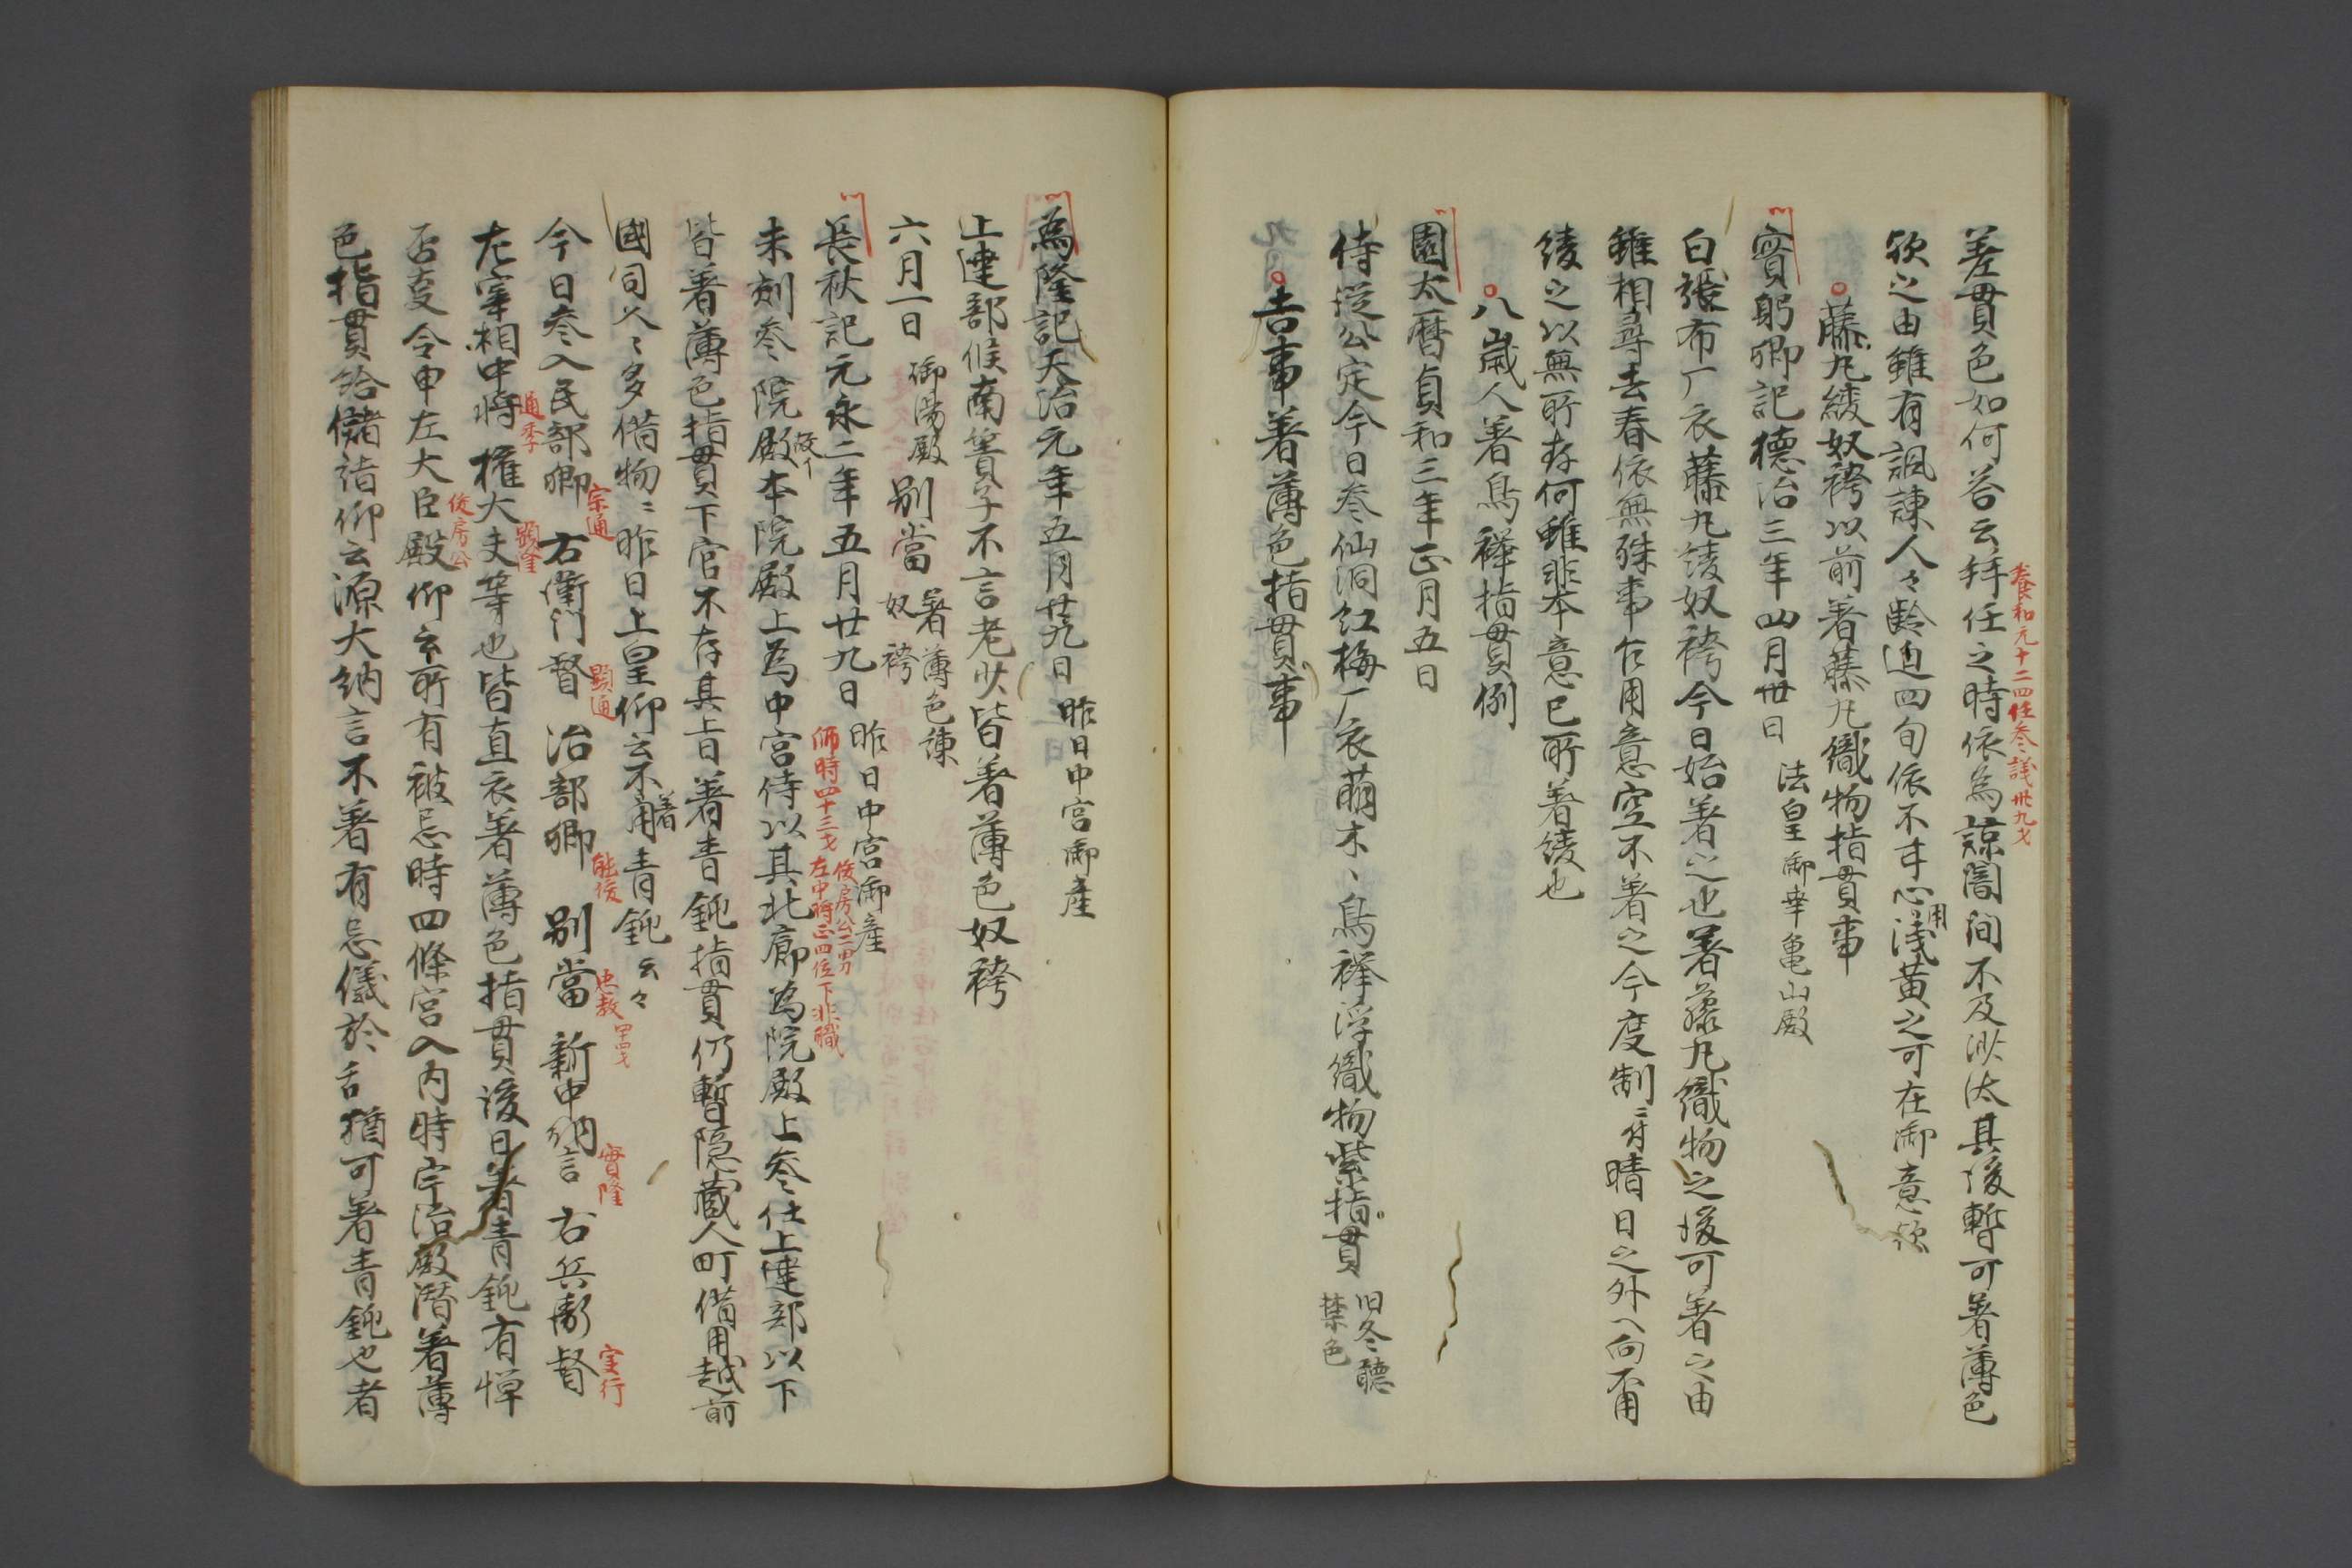 差貫色如何答云拝任之時依為諒闇間不及沙汰其後暫可著薄色
養和元十二四任参議卅九才
欤之由雖有諷諌人々齢迫四旬依不甘心用浅黄之可在御意欤
藤丸綾奴袴以前著藤丸織物指貫事
實躬卿記徳治三年四月卅日 法皇御幸亀山殿
白張布厂衣藤丸綾奴袴今日始著之也著藤丸織物之後可著之由
雖相尋去春依無殊事乍用意空不著之今度制ニ付晴日之外ヘ向不用
綾之以無所存何雖非本意已所著綾也
八歳人著鳥襷指貫例
園太暦貞和三年正月五日
侍従公定今日参仙洞紅梅厂衣萌木、鳥襷浮織物紫指貫 旧冬聴
禁色
吉事著薄色指貫事
為隆記天治元年五月廿九日 昨日中宮御産
上達部候南簀子不言老少皆著薄色奴袴
六月一日 御湯殿 別當 著薄色諫
奴袴
長秋記元永二年五月廿九日 昨日中宮御産
俊房公二男
師時四十三才 左中将正四位下非職
未刻参院殿本院殿上為中宮侍以其北廊為院殿上参仕上達部以下
皆著薄色指貫下官不存其旨著青鈍指貫仍暫隠蔵人町借用越前
國司公、多借物、昨日上皇仰云不著用青鈍云々
今日参入民部卿 宗通 右衛門督 顕通 治部卿 能俊 別當 忠教 四十四才 新中納言 實隆 右兵衛督 実行
左宰相中将 通季 権大夫 顕隆 等也皆直衣著薄色指貫後日著青鈍有憚
否変令申左大臣殿 俊房公 仰云所有被忌時四條宮入内時宇治殿潜著薄
色指貫給儲諸仰云源大納言不著有忌儀於、舌猶可著青鈍也者